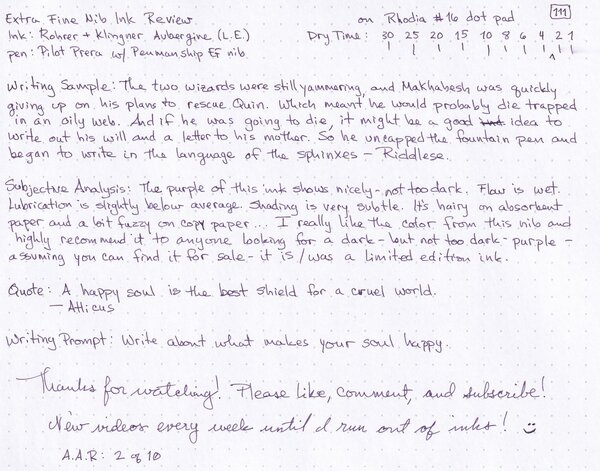 Extra Fine Nib Ink Review on Rhodia #16 dot pad 111
Ink: Rohrer + Klingner Aubergine (L.E.) Dry Time: 30 25 20 15 10 8 6 4 2 1
pen: Pilot Prera w/ Penmanship EF nib
Writing Sample: The two wizards were still yammering, and Makhabesh was quickly
giving up on his plans to rescue Quin. Which meant he would probably die trapped
in an oily web. And if he was going to die, it might be a good idea to
write out his will and a letter to his mother. So he uncapped the fountain pen and
began to write in the language of the sphinxes – Riddlese.
Subjective Analysis: The purple of this ink shows nicely – not too dark. Flow is wet.
Lubrication is slightly below average. Shading is very subtle. It's hairy on absorbent
paper and a bit fuzzy on copy paper... I really like the color from this nib and
highly recommend it to anyone looking for a dark – but not too dark – purple –
assuming you can find it for sale – it is/was a limited edition ink.
Quote: A happy soul is the best shield for a cruel world.
— Atticus
Writing Prompt: Write about what makes your soul happy.
Thanks for watching! Please like, comment, and subscribe!
New videos every week until I run out of inks!
A.A.R: 2 of 10